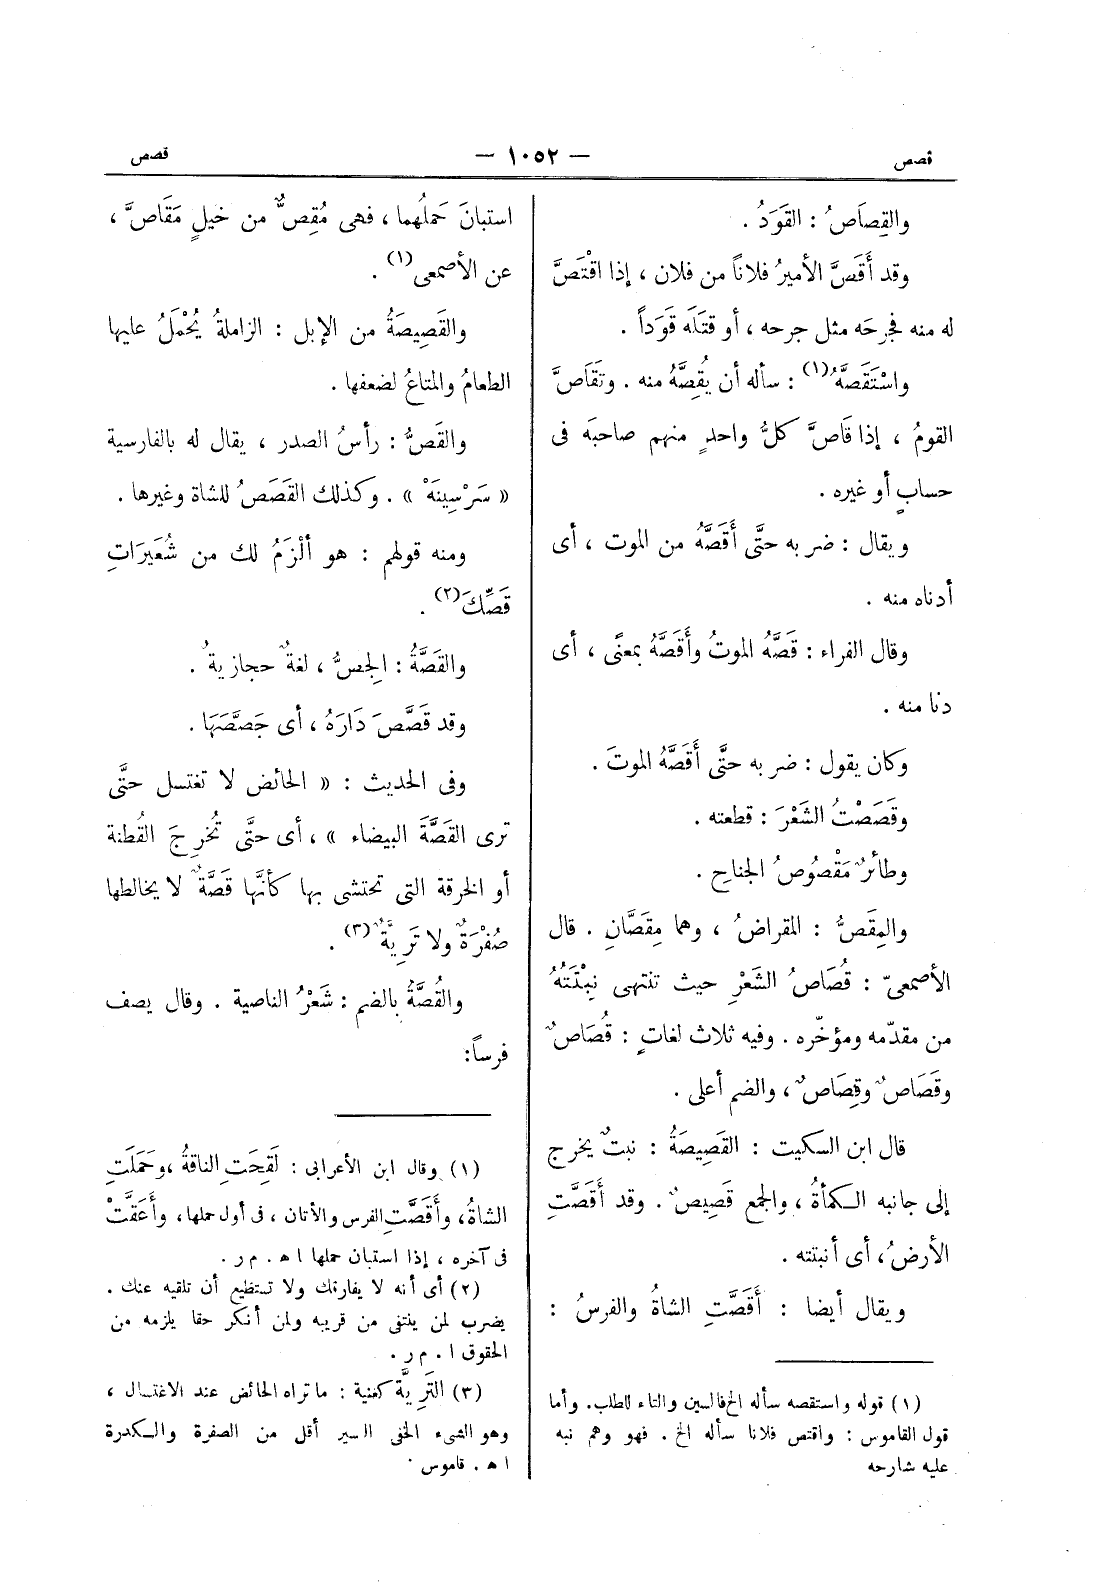 قصص
— ١٠٥٢ —
قصص
والقِصَاصُ : القَوَدُ .
وقد أَقَصَّ الأميرُ فلاناً من فلان ، إذا اقْتَصَّ
له منه فجرحَه مثل جرحه ، أو قتَلَه قَوَداً .
واسْتَقَصَّهُ(١) : سأله أن يُقِصَّهُ منه . وتَقَاصَّ
القومُ ، إذا قَاصَّ كلُّ واحدٍ منهم صاحبَه فى
حسابٍ أو غيره .
ويقال : ضربه حتَّى أَقَصَّهُ من الموت ، أى
أدناه منه .
وقال الفراء : قَصَّهُ الموتُ وأَقَصَّهُ بمعنًى ، أى
دنا منه .
وكان يقول : ضربه حتَّى أَقَصَّهُ الموتَ .
وقَصَصْتُ الشَعْرَ : قطعته .
وطائرٌ مَقْصُوصُ الجناحِ .
والمِقَصُّ : المقراضُ ، وهما مِقَصَّانِ . قال
الأصمعىّ : قُصَاصُ الشَعْرِ حيث تنتهى نِبْتَتُهُ
من مقدّمه ومؤخّره . وفيه ثلاث لغاتٍ : قُصَاصٌ
وقَصَاصٌ وقِصَاصٌ ، والضم أعلى .
قال ابن السكيت : القَصِيصَةُ : نبتٌ يخرج
إلى جانبه الكمأةُ ، والجمع قَصِيصٌ . وقد أَقَصَّتِ
الأرضُ ، أى أنبتته .
ويقال أيضا : أَقَصَّتِ الشاةُ والفرسُ :
(١) قوله واستقصه سأله الخ فالسين والتاء للطلب. وأما
قول القاموس : واقتص فلانا سأله الخ . فهو وهم نبه
عليه شارحه
استبانَ حَملُهما ، فهى مُقِصٌّ من خيلٍ مَقَاصَّ ،
عن الأصمعى(١) .
والقَصِيصَةُ من الإبل : الزاملةُ يُحْمَلُ عليها
الطعامُ والمتاعُ لضعفها .
والقَصُّ : رأسُ الصدر ، يقال له بالفارسية
« سَرْسِينَهْ » . وكذلك القَصَصُ للشاة وغيرها .
ومنه قولهم : هو ألْزَمُ لك من شُعَيرَاتِ
قَصِّكَ(٢) .
والقَصَّةُ : الجِصُّ ، لغةٌ حجازيةٌ .
وقد قَصَّصَ دَارَهُ ، أى جَصَّصَهَا .
وفى الحديث : « الحائض لا تغتسل حتَّى
ترى القَصَّةَ البيضاء » ، أى حتَّى تُخرِجَ القُطنة
أو الخرقة التى تحتشى بها كأنَّها قَصَّةٌ لا يخالطها
صُفْرَةٌ ولا تَرِيَّةٌ(٣) .
والقُصَّةُ بالضم : شَعْرُ الناصية . وقال يصف
فرساً:
(١) وقال ابن الأعرابى : لَقِحَتِ الناقةُ ، وحَمَلَتِ
الشاةُ، وأَقَصَّتِ الفرس والأتان ، فى أول حملها، وأَعَقَّتْ
فى آخره ، إذا استبان حملها ا هـ . م ر .
(٢) أى أنه لا يفارقك ولا تستطيع أن تلقيه عنك .
يضرب لمن ينتفى من قريبه ولمن أنكر حقا يلزمه من
الحقوق ا . م ر .
(٣) التَرِيَّة كغنية : ما تراه الحائض عند الاغتسال ،
وهو الشىء الخفى اليسير أقل من الصفرة والكدرة
ا هـ . قاموس .